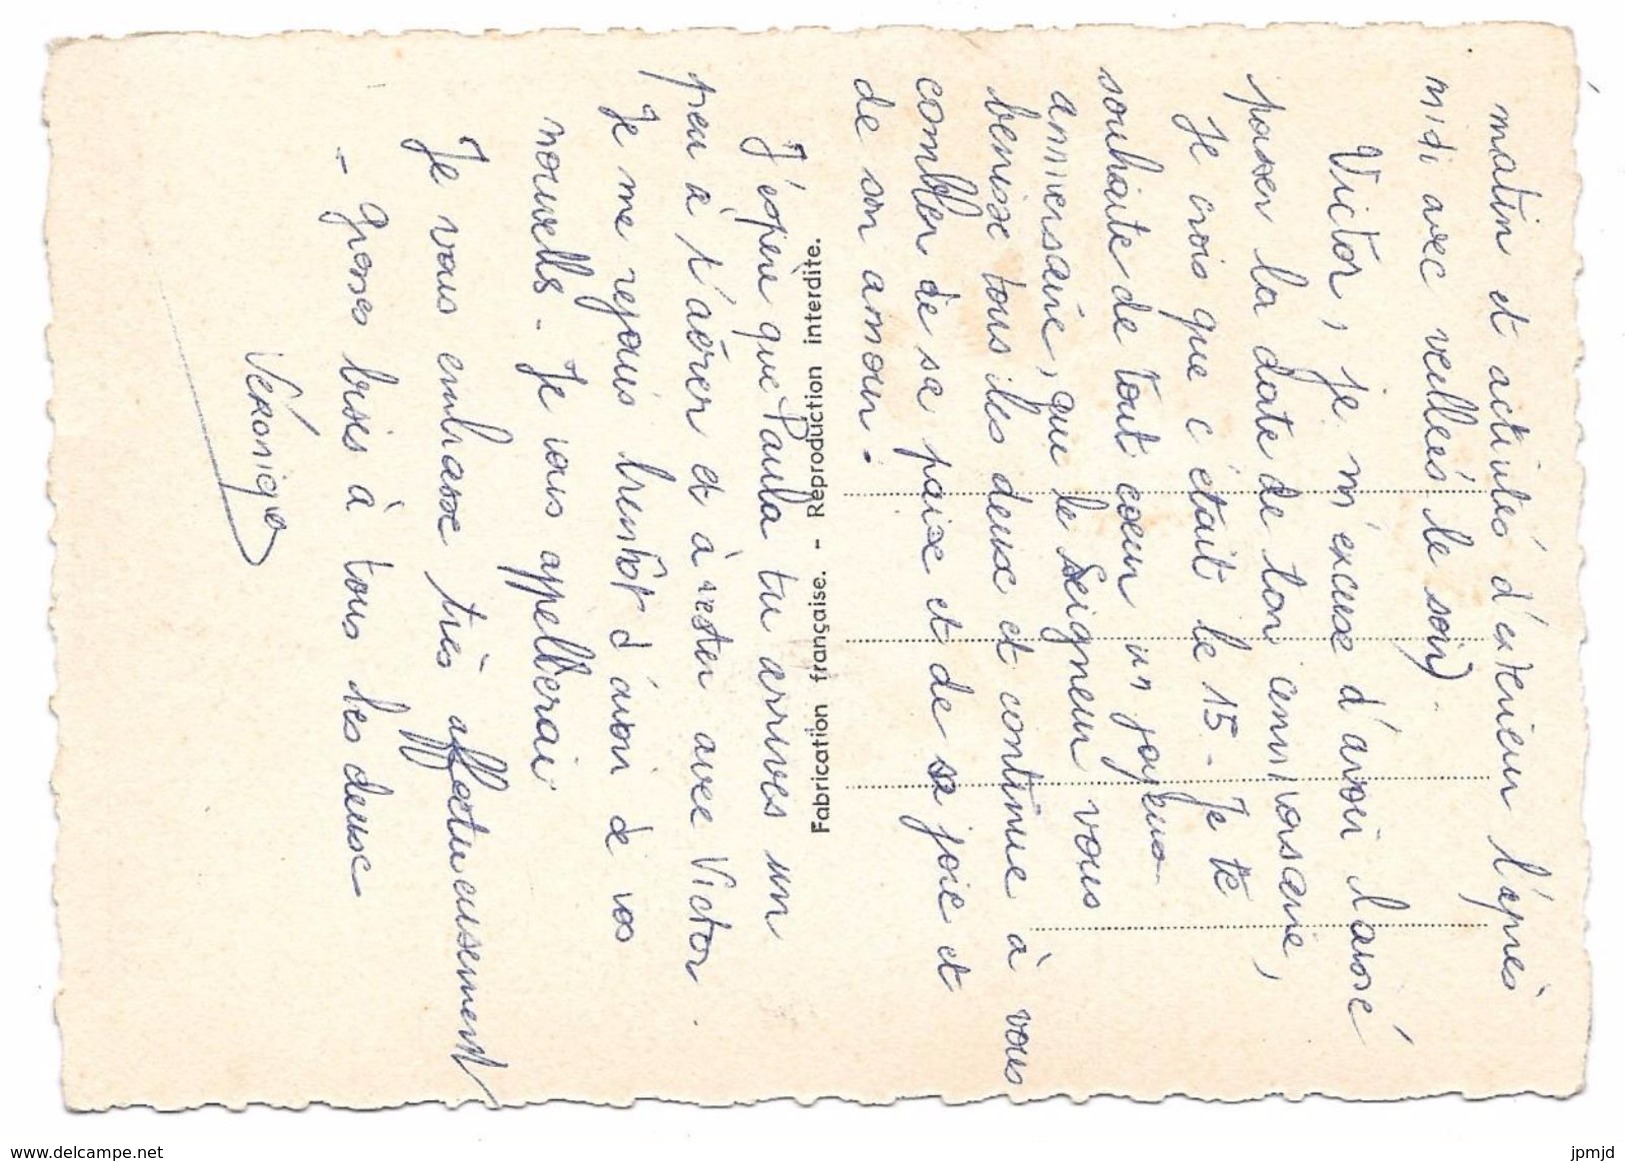 matin et activités d'extérieur l'après
midi avec veilleés le soir)
Victor, je m'excuse d'avoir laissé
passer la date de ton anniversaire,
Je crois que c'était le 15 - Je te
souhaite de tout coeur un joyeux
anniversaire, que le Seigneur vous
benisse tous les deux et continue à vous
combler de sa paix et de sa joie et
de son amour.
Fabrication française. - Reproduction interdite.
J'espère que Paula tu arrives un
peu à t'aérer et à rester avec Victor
Je me rejouis bientôt d'avoir de vos
nouvelles - Je vous appellerai
Je vous embrasse très affectueusement
- grosses bises à tous les deux
Véronique
www.delcampe.net
jpmjd